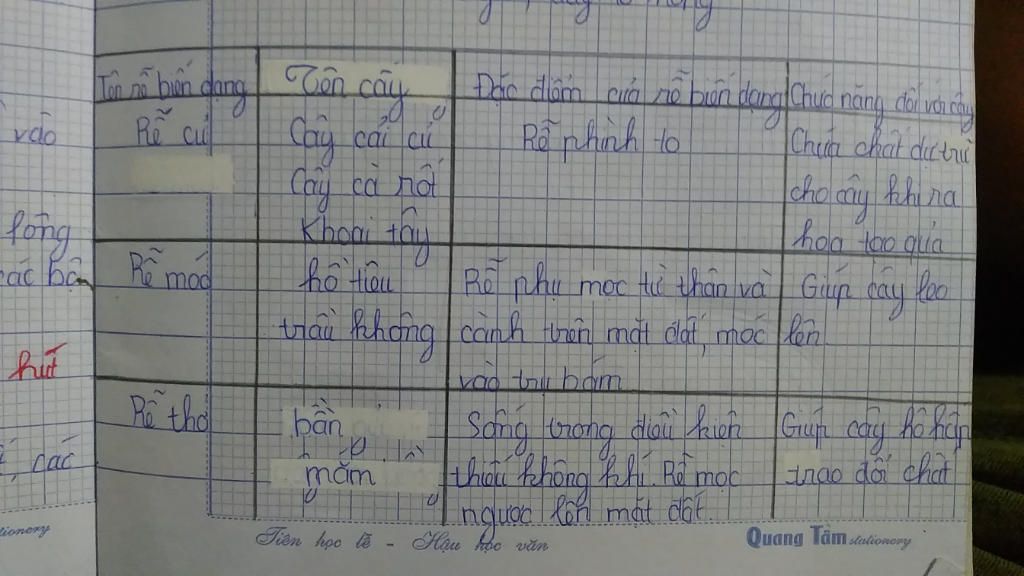 Tên rễ biến dạng
Tên cây
Đặc điểm của rễ biến dạng
Chức năng đối với cây
Rễ củ
Cây cải củ
Cây cà rốt
Khoai tây
Rễ phình to
Chứa chất dự trữ
cho cây khi ra
hoa tạo quả
Rễ móc
hồ tiêu
trầu không
Rễ phụ mọc từ thân và
cành trên mặt đất, móc
vào trụ bám
Giúp cây leo
lên
Rễ thở
bần
mắm
Sống trong điều kiện
thiếu không khí. Rễ mọc
ngược lên mặt đất.
Giúp cây hô hấp
trao đổi chất
vào
lông
các bộ
hút
các
Tiên học lễ - Hậu học văn
Quang Tâm stationery